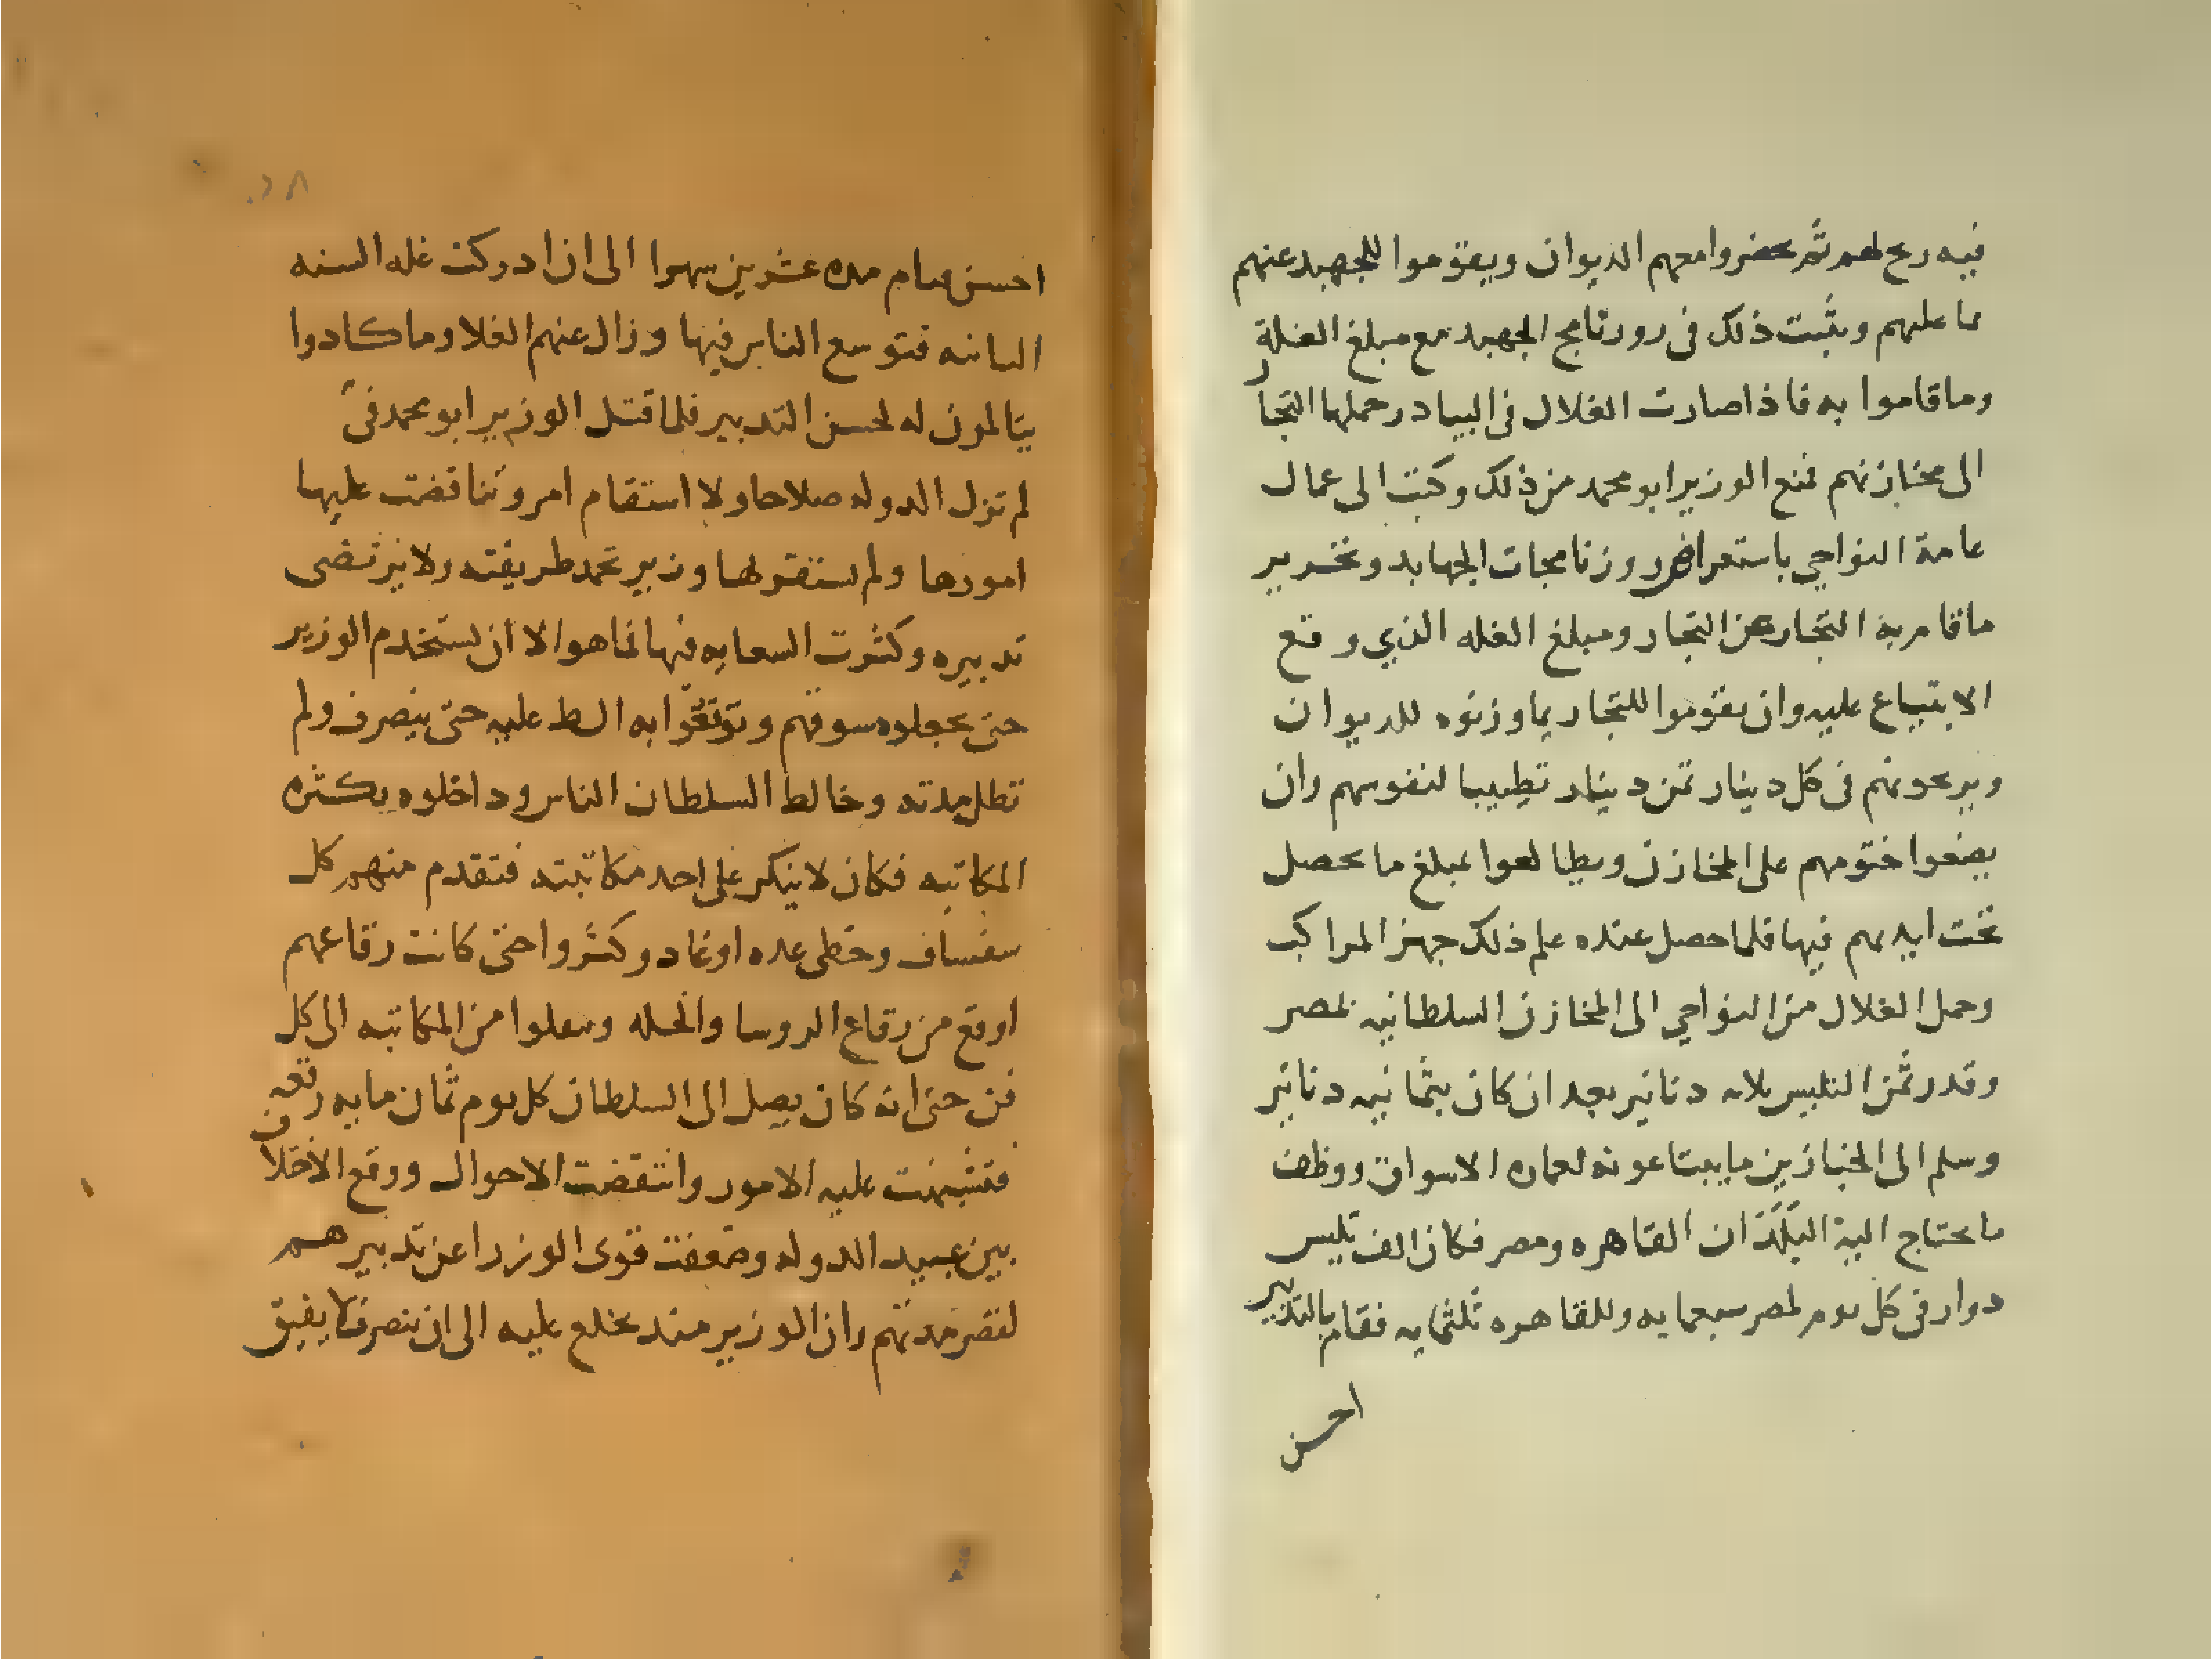 فيه ربح لهم ثم يحضروا معهم الديوان ويقوموا للجهبد عنهم
ما عليهم ويثبت ذلك في روزنامج الجهبد مع مبلغ الغلة
وما قاموا به فاذا صارت الغلال في البيادر حملها التجار
الى مخازنهم فمنع الوزير ابو محمد من ذلك وكتب الى عمال
عامة النواحي باستعراض روزنامجات الجهابد وتحرير
ما قام به التجار عن التجار ومبلغ الغله الذي وقع
الابتياع عليه وان يقوموا للتجار بما وزنوه للديوان
ويربحونهم في كل دينار ثمن دينار تطييبا لنفوسهم وان
يضعوا ختومهم على المخازن ويطالعوا بمبلغ ما يحصل
تحت ايديهم فيها فلما حصل عنده علم ذلك جهز المراكب
وحمل الغلال من النواحي الى المخازن السلطانيه بمصر
وقدر ثمن التليس بلاثه دنانير بعد ان كان بثمانيه دنانير
وسلم الى الخبازين ما يبتاعونه لعماره الاسواق ووظف
ما يحتاج اليه البلدان القاهره ومصر فكان الف تليس
دوار في كل يوم لمصر سبعمايه وللقاهره ثلثمايه فقام بالتدبير
احسن
٢٨
احسن قيام مده عشرين شهرا الى ان ادركت غله السنه
الثانيه فتوسع الناس فيها وزال عنهم الغلا وما كادوا
يتالمون له لحسن التدبير فلما قتل الوزير ابو محمد في
لم تزل الدوله صلاحا ولا استقام امر وتناقضت عليها
امورها ولم يستقر لها وزير تحمد طريقته ولا يرتضى
تدبيره وكثرت السعايه فيها فما هو الا ان يستخدم الوزير
حتى يجعلوه سوقهم ويوتقوا به الط عليه حتى ينصرف ولم
تطل مدته وخالط السلطان الناس وداخلوه بكثره
المكاتبه فكان لا ينكر على احد مكاتبته فتقدم منهم كل
سفساف وحظى عده اوغاد وكثروا حتى كانت رقاعهم
اوقع من رقاع الروسا والجله وتنقلوا من المكاتبه الى كل
فن حتى انه كان يصل الى السلطان كل يوم ثمان مايه رقعه
فتشبهت عليه الامور وانتقضت الاحوال ووقع الاختلاف
بين عبيد الدوله وضعفت قوى الوزرا عن تدبيرهم
لقصر مدتهم وان الوزير منذ يخلع عليه الى ان ينصرف لا يفيق